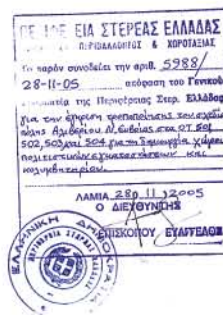 ΕΙΑ ΣΤΕΡΕΑΣ ΕΛΛΑΔΑΣ
ΠΕΡΙΒΑΛΛΟΝΤΟΣ & ΧΩΡΟΤΑΞΙΑΣ
Το παρόν συνοδεύει την αριθ. 5988/
28-11-05 απόφαση του Γενικού
της Περιφέρειας Στερ. Ελλάδας
για την έγκριση τροποποίησης του σχεδίου
πόλης Αλιβερίου Ν. Ευβοίας στα ΟΤ 501
502, 503 και 504 για τη δημιουργία χώρων
πολιτιστικών εγκαταστάσεων και
κολυμβητηρίου.
ΛΑΜΙΑ 28 11 2005
Ο ΔΙΕΥΘΥΝΤΗΣ
ΕΠΙΣΚΟΠΟΥ ΕΥΑΓΓΕΛΟΣ
ΕΛΛΗΝΙΚΗ ΔΗΜΟΚΡΑΤΙΑ